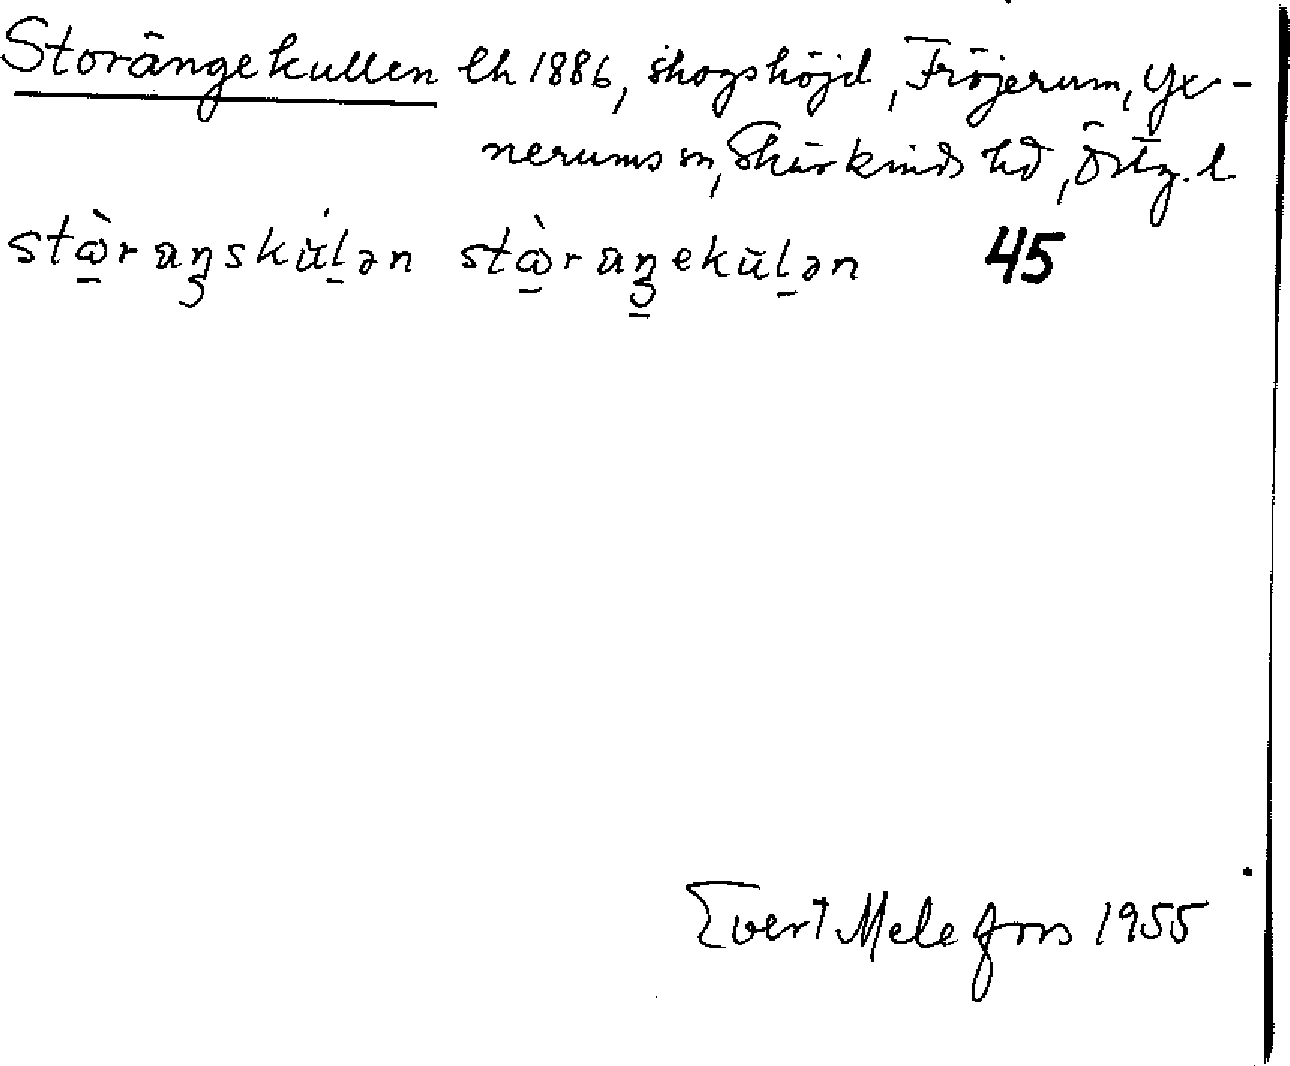 Storängekullen lh 1886, skogshöjd, Fröjerum, Yx-
nerums sn, Skärkinds hd, Östg. l
stɷ̀raŋskŭlən stɷ̀raŋekŭlən 45
Evert Melefors 1955